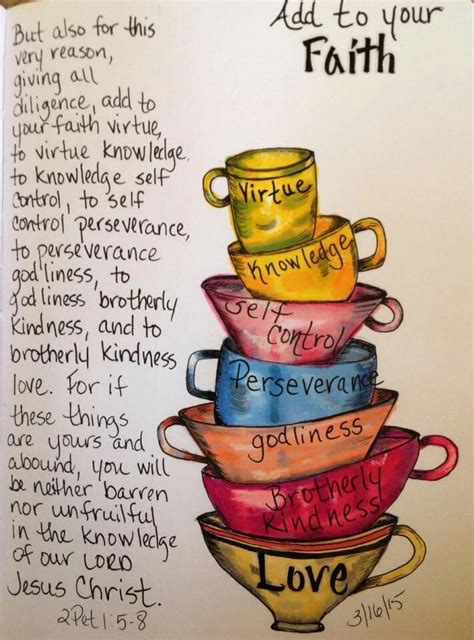 But also for this
very reason,
giving all
diligence, add to
your faith virtue,
to virtue knowledge.
to knowledge self
control, to self
control perseverance,
to perseverance
godliness, to
godliness brotherly
kindness, and to
brotherly kindness
love. For if
these things
are yours and
abound, you will
be neither barren
nor unfruiful
in the knowledge
of our LORD
Jesus Christ.
2Pet 1:5-8
Add to your
Faith
Virtue
Knowledge
Self
Control
Perseverance
godliness
Brotherly
Kindness
Love
3/16/15